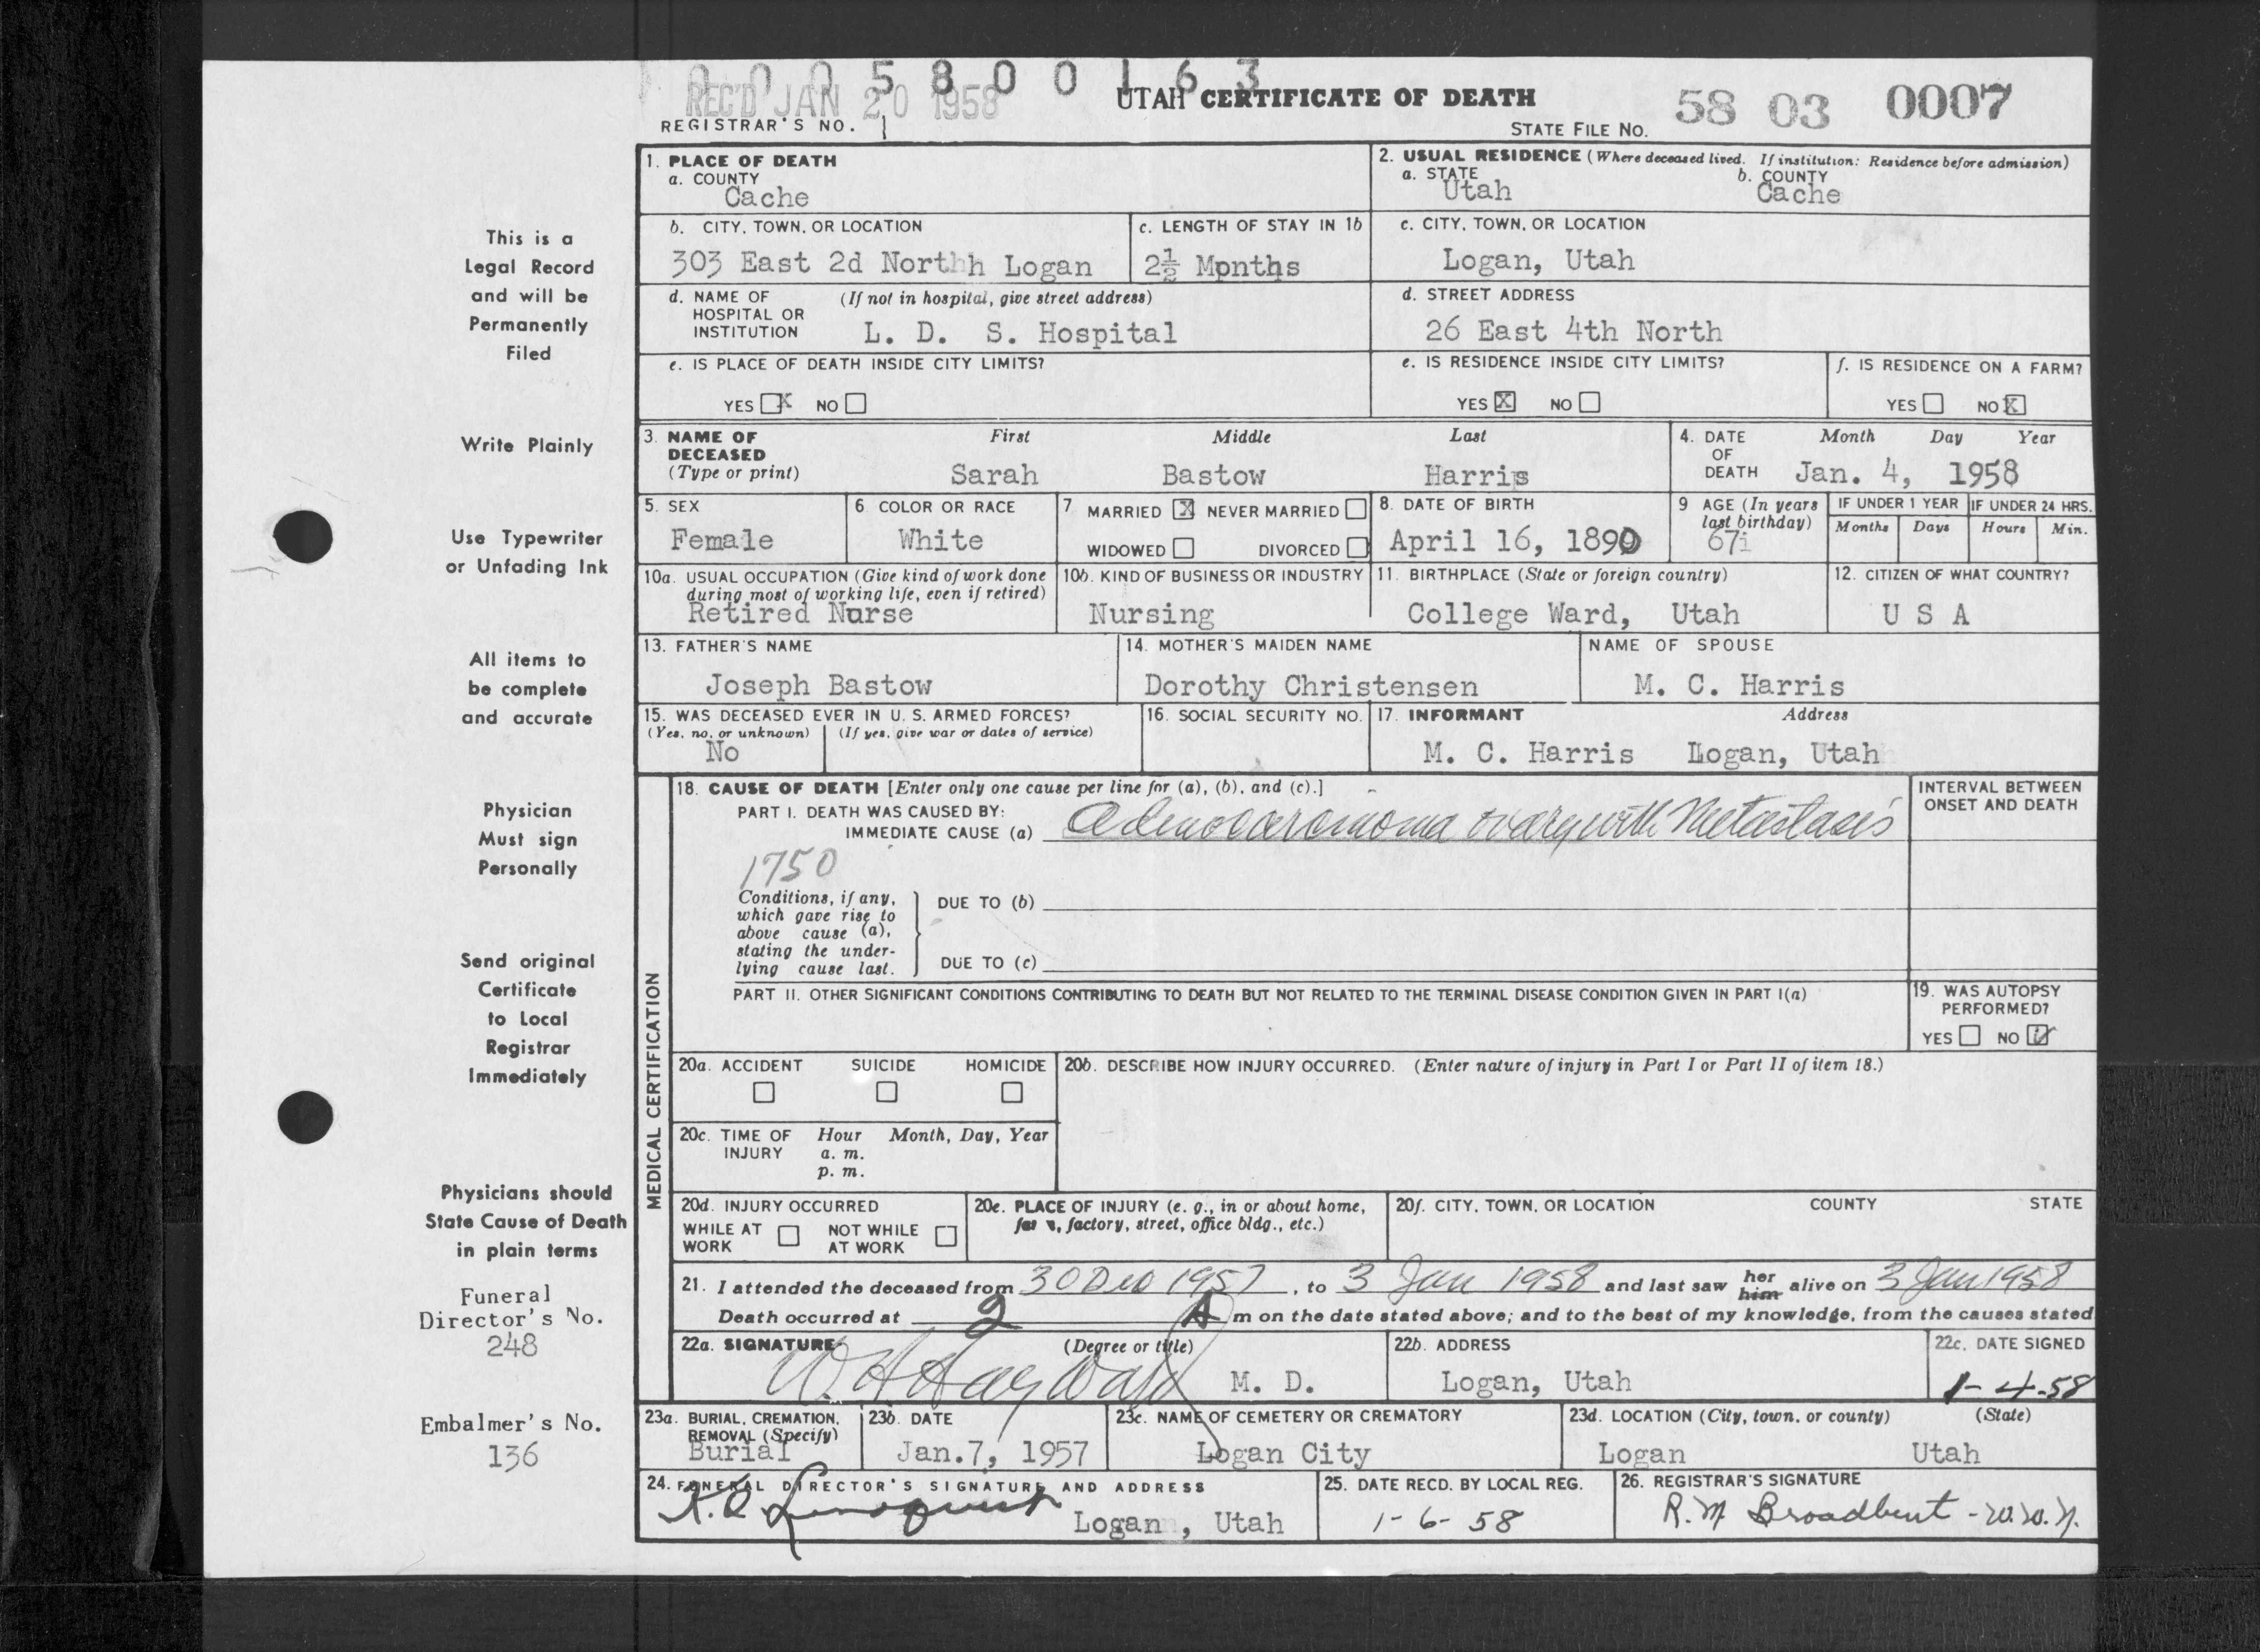 0 0 0 5 8 0 0 1 6 3
REC'D JAN 20 1958
UTAH CERTIFICATE OF DEATH
58 03 0007
REGISTRAR'S NO. 1
STATE FILE NO.
1. PLACE OF DEATH
a. COUNTY
Cache
2. USUAL RESIDENCE (Where deceased lived. If institution: Residence before admission)
a. STATE b. COUNTY
Utah Cache
b. CITY, TOWN, OR LOCATION
303 East 2d North Logan
c. LENGTH OF STAY IN 1b
2½ Months
c. CITY, TOWN, OR LOCATION
Logan, Utah
d. NAME OF HOSPITAL OR INSTITUTION (If not in hospital, give street address)
L. D. S. Hospital
d. STREET ADDRESS
26 East 4th North
e. IS PLACE OF DEATH INSIDE CITY LIMITS?
YES X NO
e. IS RESIDENCE INSIDE CITY LIMITS?
YES X NO
f. IS RESIDENCE ON A FARM?
YES NO X
3. NAME OF DECEASED (Type or print)
First Middle Last
Sarah Bastow Harris
4. DATE OF DEATH Month Day Year
Jan. 4, 1958
5. SEX
Female
6 COLOR OR RACE
White
7 MARRIED X NEVER MARRIED
WIDOWED DIVORCED
8. DATE OF BIRTH
April 16, 1890
9 AGE (In years last birthday)
67
IF UNDER 1 YEAR IF UNDER 24 HRS.
Months Days Hours Min.
10a. USUAL OCCUPATION (Give kind of work done during most of working life, even if retired)
Retired Nurse
10b. KIND OF BUSINESS OR INDUSTRY
Nursing
11. BIRTHPLACE (State or foreign country)
College Ward, Utah
12. CITIZEN OF WHAT COUNTRY?
U S A
13. FATHER'S NAME
Joseph Bastow
14. MOTHER'S MAIDEN NAME
Dorothy Christensen
NAME OF SPOUSE
M. C. Harris
15. WAS DECEASED EVER IN U. S. ARMED FORCES?
(Yes, no, or unknown) (If yes, give war or dates of service)
No
16. SOCIAL SECURITY NO.
17. INFORMANT Address
M. C. Harris Logan, Utah
MEDICAL CERTIFICATION
18. CAUSE OF DEATH [Enter only one cause per line for (a), (b), and (c).]
INTERVAL BETWEEN ONSET AND DEATH
PART I. DEATH WAS CAUSED BY:
IMMEDIATE CAUSE (a) Adenocarcinoma ovary with Metastasis
1750
Conditions, if any, which gave rise to above cause (a), stating the underlying cause last.
DUE TO (b)
DUE TO (c)
PART II. OTHER SIGNIFICANT CONDITIONS CONTRIBUTING TO DEATH BUT NOT RELATED TO THE TERMINAL DISEASE CONDITION GIVEN IN PART I(a)
19. WAS AUTOPSY PERFORMED?
YES NO
20a. ACCIDENT SUICIDE HOMICIDE
20b. DESCRIBE HOW INJURY OCCURRED. (Enter nature of injury in Part I or Part II of item 18.)
20c. TIME OF INJURY Hour Month, Day, Year
a. m.
p. m.
20d. INJURY OCCURRED
WHILE AT WORK NOT WHILE AT WORK
20e. PLACE OF INJURY (e. g., in or about home, factory, street, office bldg., etc.)
20f. CITY, TOWN, OR LOCATION COUNTY STATE
21. I attended the deceased from 30 Dec 1957, to 3 Jan 1958 and last saw her him alive on 3 Jan 1958
Death occurred at 2 A m on the date stated above; and to the best of my knowledge, from the causes stated
22a. SIGNATURE (Degree or title)
W. H. Hayward M. D.
22b. ADDRESS
Logan, Utah
22c. DATE SIGNED
1-4-58
23a. BURIAL, CREMATION, REMOVAL (Specify)
Burial
23b. DATE
Jan.7, 1957
23c. NAME OF CEMETERY OR CREMATORY
Logan City
23d. LOCATION (City, town, or county) (State)
Logan Utah
24. FUNERAL DIRECTOR'S SIGNATURE AND ADDRESS
Logan, Utah
25. DATE RECD. BY LOCAL REG.
1-6-58
26. REGISTRAR'S SIGNATURE
R.M Broadbent
This is a
Legal Record
and will be
Permanently
Filed
Write Plainly
Use Typewriter
or Unfading Ink
All items to
be complete
and accurate
Physician
Must sign
Personally
Send original
Certificate
to Local
Registrar
Immediately
Physicians should
State Cause of Death
in plain terms
Funeral
Director's No.
248
Embalmer's No.
136